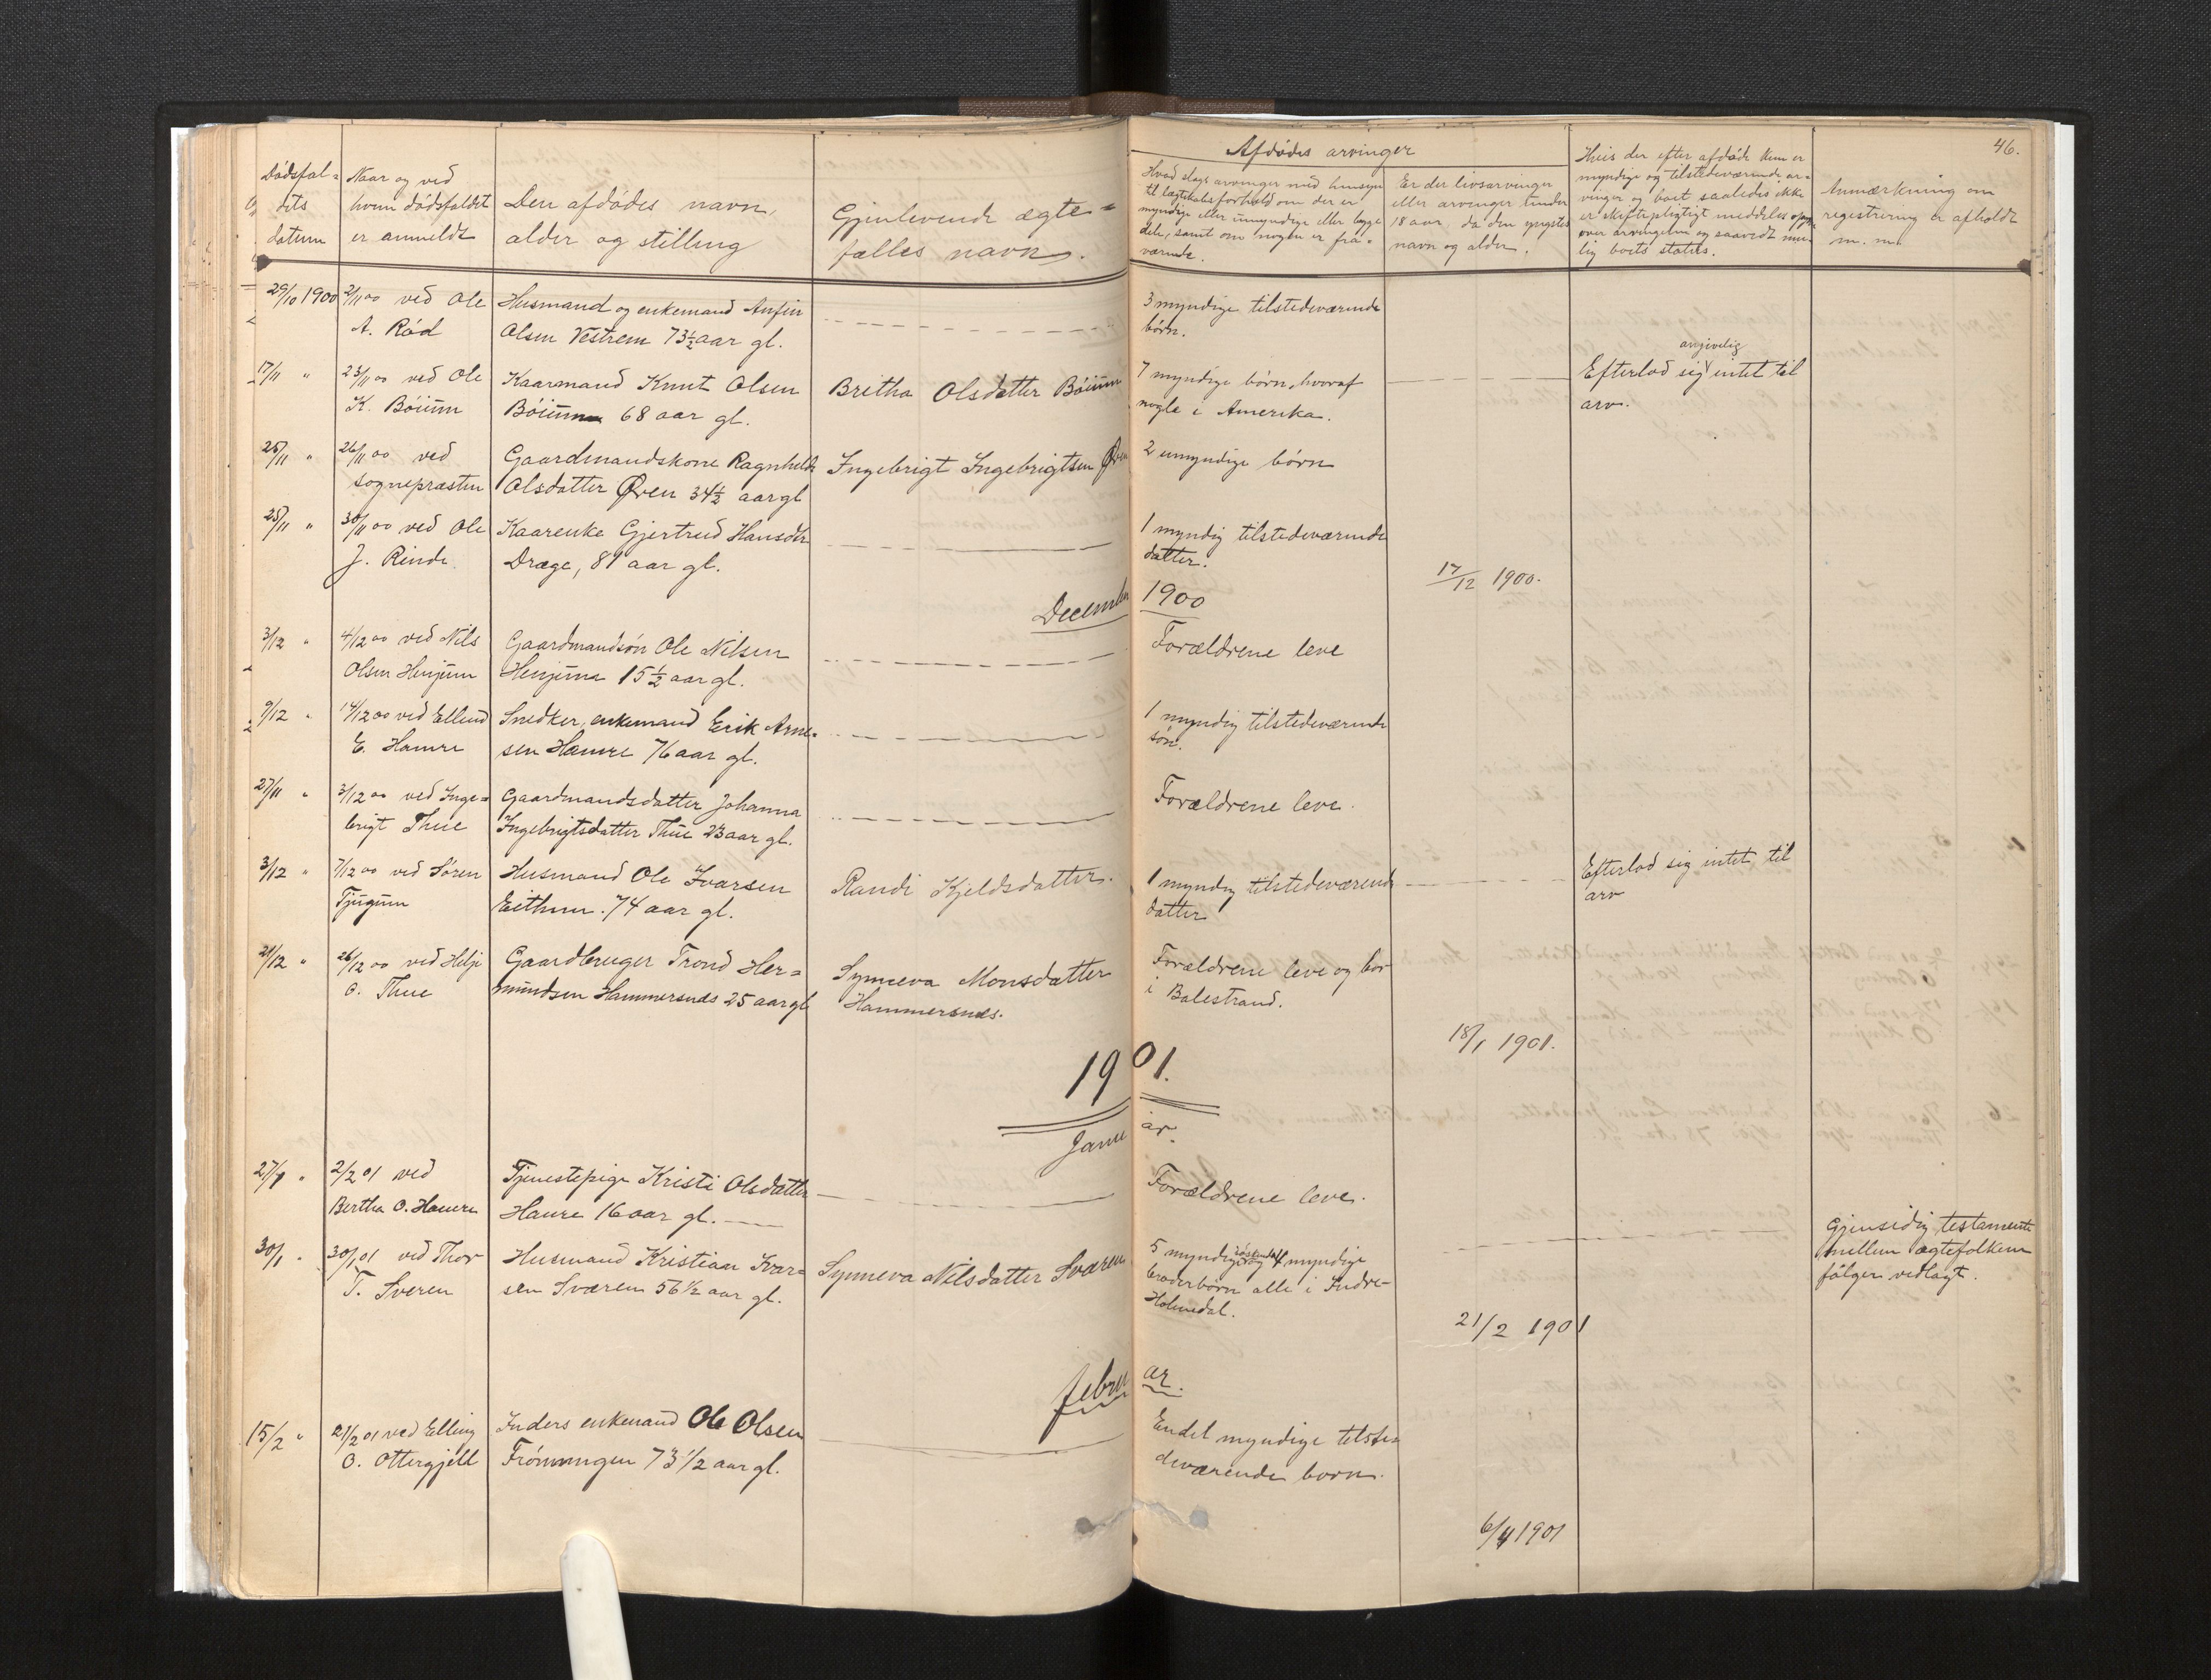 46.
Dödsfal-
dets
datum
Naar og ved
hvem dödsfaldet
er anmeldt
Den afdödes navn,
alder og stilling
Gjenlevende ægte-
fælles navn.
Afdödes arvinger
Hvad slags arvinger med hensyn
til slægtskabsforhold om der er
myndige eller umyndige eller begge
dele, samt om nogen er fra-
værende.
Er der livsarvinger
eller arvinger under
18 aar, da den yngstes
navn og alder.
Hvis der efter afdöde kun er
myndige og tilstedeværende ar-
vinger og boet saaledes ikke
er skiftepligtigt meddeles opg.
over arvingerne og saavidt mu-
lig boets status.
Anmærkning om
registrering er afholdt
m. m.
29/10 1900
2/11 00 ved Ole
A. Röd
Husmand og enkemand Anfin
Olsen Vestrem 73½ aar gl.
3 myndige tilstedeværende
börn.
17/11 "
23/11 00 ved Ole
K. Böium
Kaarmand Knut Olsen
Böium 68 aar gl.
Britha Olsdatter Böium
7 myndige börn, hvoraf
nogle i Amerika.
angivelig
Efterlod sig intet til
arv.
25/11 "
26/11 00 ved
sognepræsten
Gaardmandskone Ragnhild
Olsdatter Øren 34½ aar gl
Ingebrigt Ingebrigtsen Øren
2 umyndige börn
25/11 "
30/11 00 ved Ole
J. Rinde
Kaarenke Gjertrud Hansdtr
Dræge, 81 aar gl.
1 myndig tilstedeværende
datter.
17/12 1900.
December 1900
3/12 "
4/12 00 ved Nils
Olsen Henjum
Gaardmandsön Ole Nilsen
Henjum 15½ aar gl.
Forældrene leve
9/12 "
14/12 00 ved Ellend
E. Hamre
Snedker, enkemand Erik Arne-
sen Hamre 76 aar gl.
1 myndig tilstedeværende
sön.
27/11 "
3/12 00 ved Inge-
brigt Thue
Gaardmandsdatter Johanna
Ingebrigtsdatter Thue 23 aar gl.
Forældrene leve.
3/12 "
7/12 00 ved Sören
Tjugum
Husmand Ole Ivarsen
Eithun. 74 aar gl.
Randi Kjeldsdatter.
1 myndig tilstedeværende
datter
Efterlod sig intet til
arv
21/12 "
26/12 00 ved Helje
O. Thue
Gaardbruger Trond Her-
mundsen Hammersnes 25 aar gl
Synneva Monsdatter
Hammersnes.
Forældrene leve og bor
i Balestrand.
18/1 1901.
1901.
Januar.
27/1 "
2/2 01 ved
Bertha O. Hamre
Tjenestepige Kristi Olsdatter
Hamre 16 aar gl.
Forældrene leve.
30/1 "
30/1 01 ved Thor
T. Sværen
Husmand Kristian Ivar-
sen Sværen 56½ aar gl.
Synneva Nilsdatter Sværen
5 myndige söskende og 4 myndige
broderbörn alle i Indre-
Holmedal.
Gjensidig testamente
mellem ægtefolkene
fölger vedlagt.
21/2 1901
februar.
15/2 "
21/2 01 ved Elling
O. Ottergjeld
Inders enkemand Ole Olsen
Frönningen 73½ aar gl.
Endel myndige tilste-
deværende born.
6/4 1901